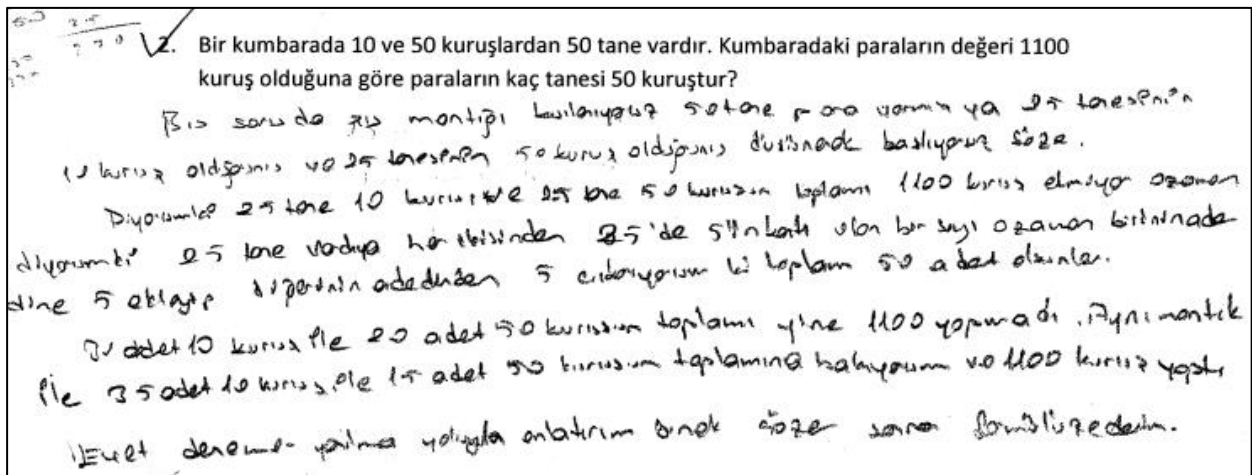 2. Bir kumbarada 10 ve 50 kuruşlardan 50 tane vardır. Kumbaradaki paraların değeri 1100
kuruş olduğuna göre paraların kaç tanesi 50 kuruştur?
Biz soruda şu mantığı kullanıyoruz 50 tane para varmış ya 25 tanesinin
10 kuruş olduğunu ve 25 tanesinin 50 kuruş olduğunu düşünerek başlıyoruz söze.
Diyorumki 25 tane 10 kuruş ve 25 tane 50 kuruşun toplamı 1100 kuruş etmiyor ozaman
diyorumki 25 tane vardıya her ikisinden 25'de 5'in katı olan bir sayı ozaman birininade
dine 5 ekleyip diğerinin adedinden 5 çıkarıyorum ki toplam 50 adet olsunlar.
30 adet 10 kuruş ile 20 adet 50 kuruşun toplamı yine 1100 yapmadı. Aynı mantık
ile 35 adet 10 kuruş ile 15 adet 50 kuruşun toplamına bakıyorum ve 1100 kuruş yaptı.
Evet deneme-yanılma yoluyla anlatırım örnek çözer sonra